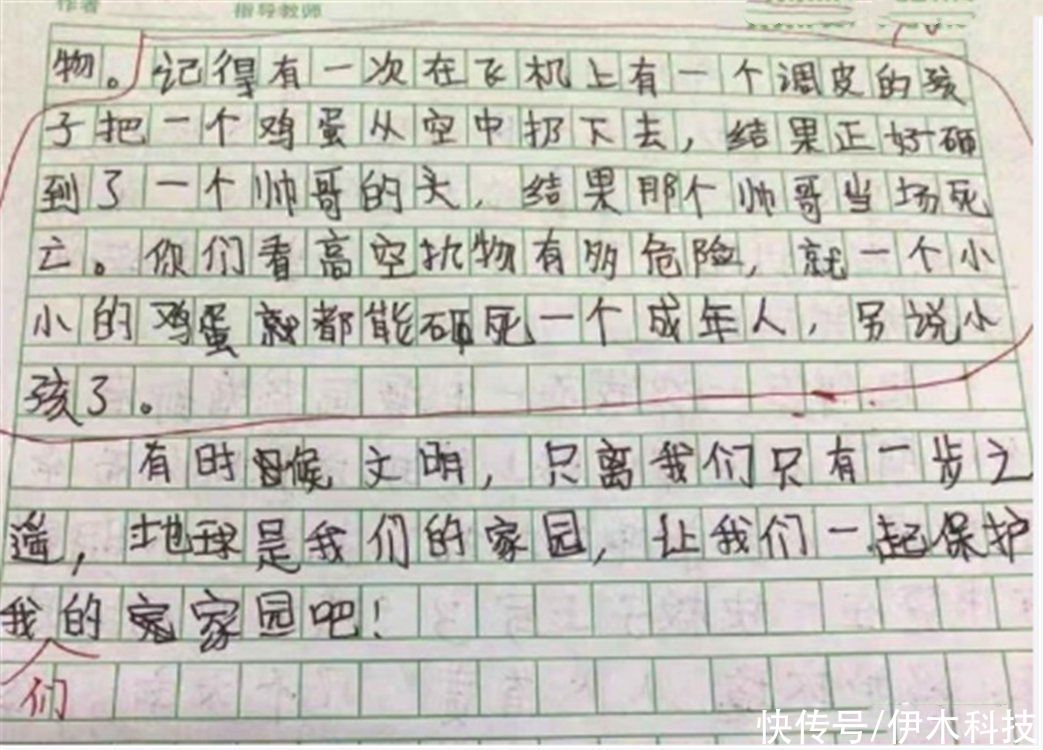 作者 指导教师
物。记得有一次在飞机上有一个调皮的孩
子把一个鸡蛋从空中扔下去，结果正好砸
到了一个帅哥的头，结果那个帅哥当场死
亡。你们看高空执物有多危险，就一个小
小的鸡蛋就都能砸死一个成年人，另说小
孩了。
有时候文明，只离我们只有一步之
遥，地球是我们的家园，让我们一起保护
我的家园吧！
们
快传号/伊木科技